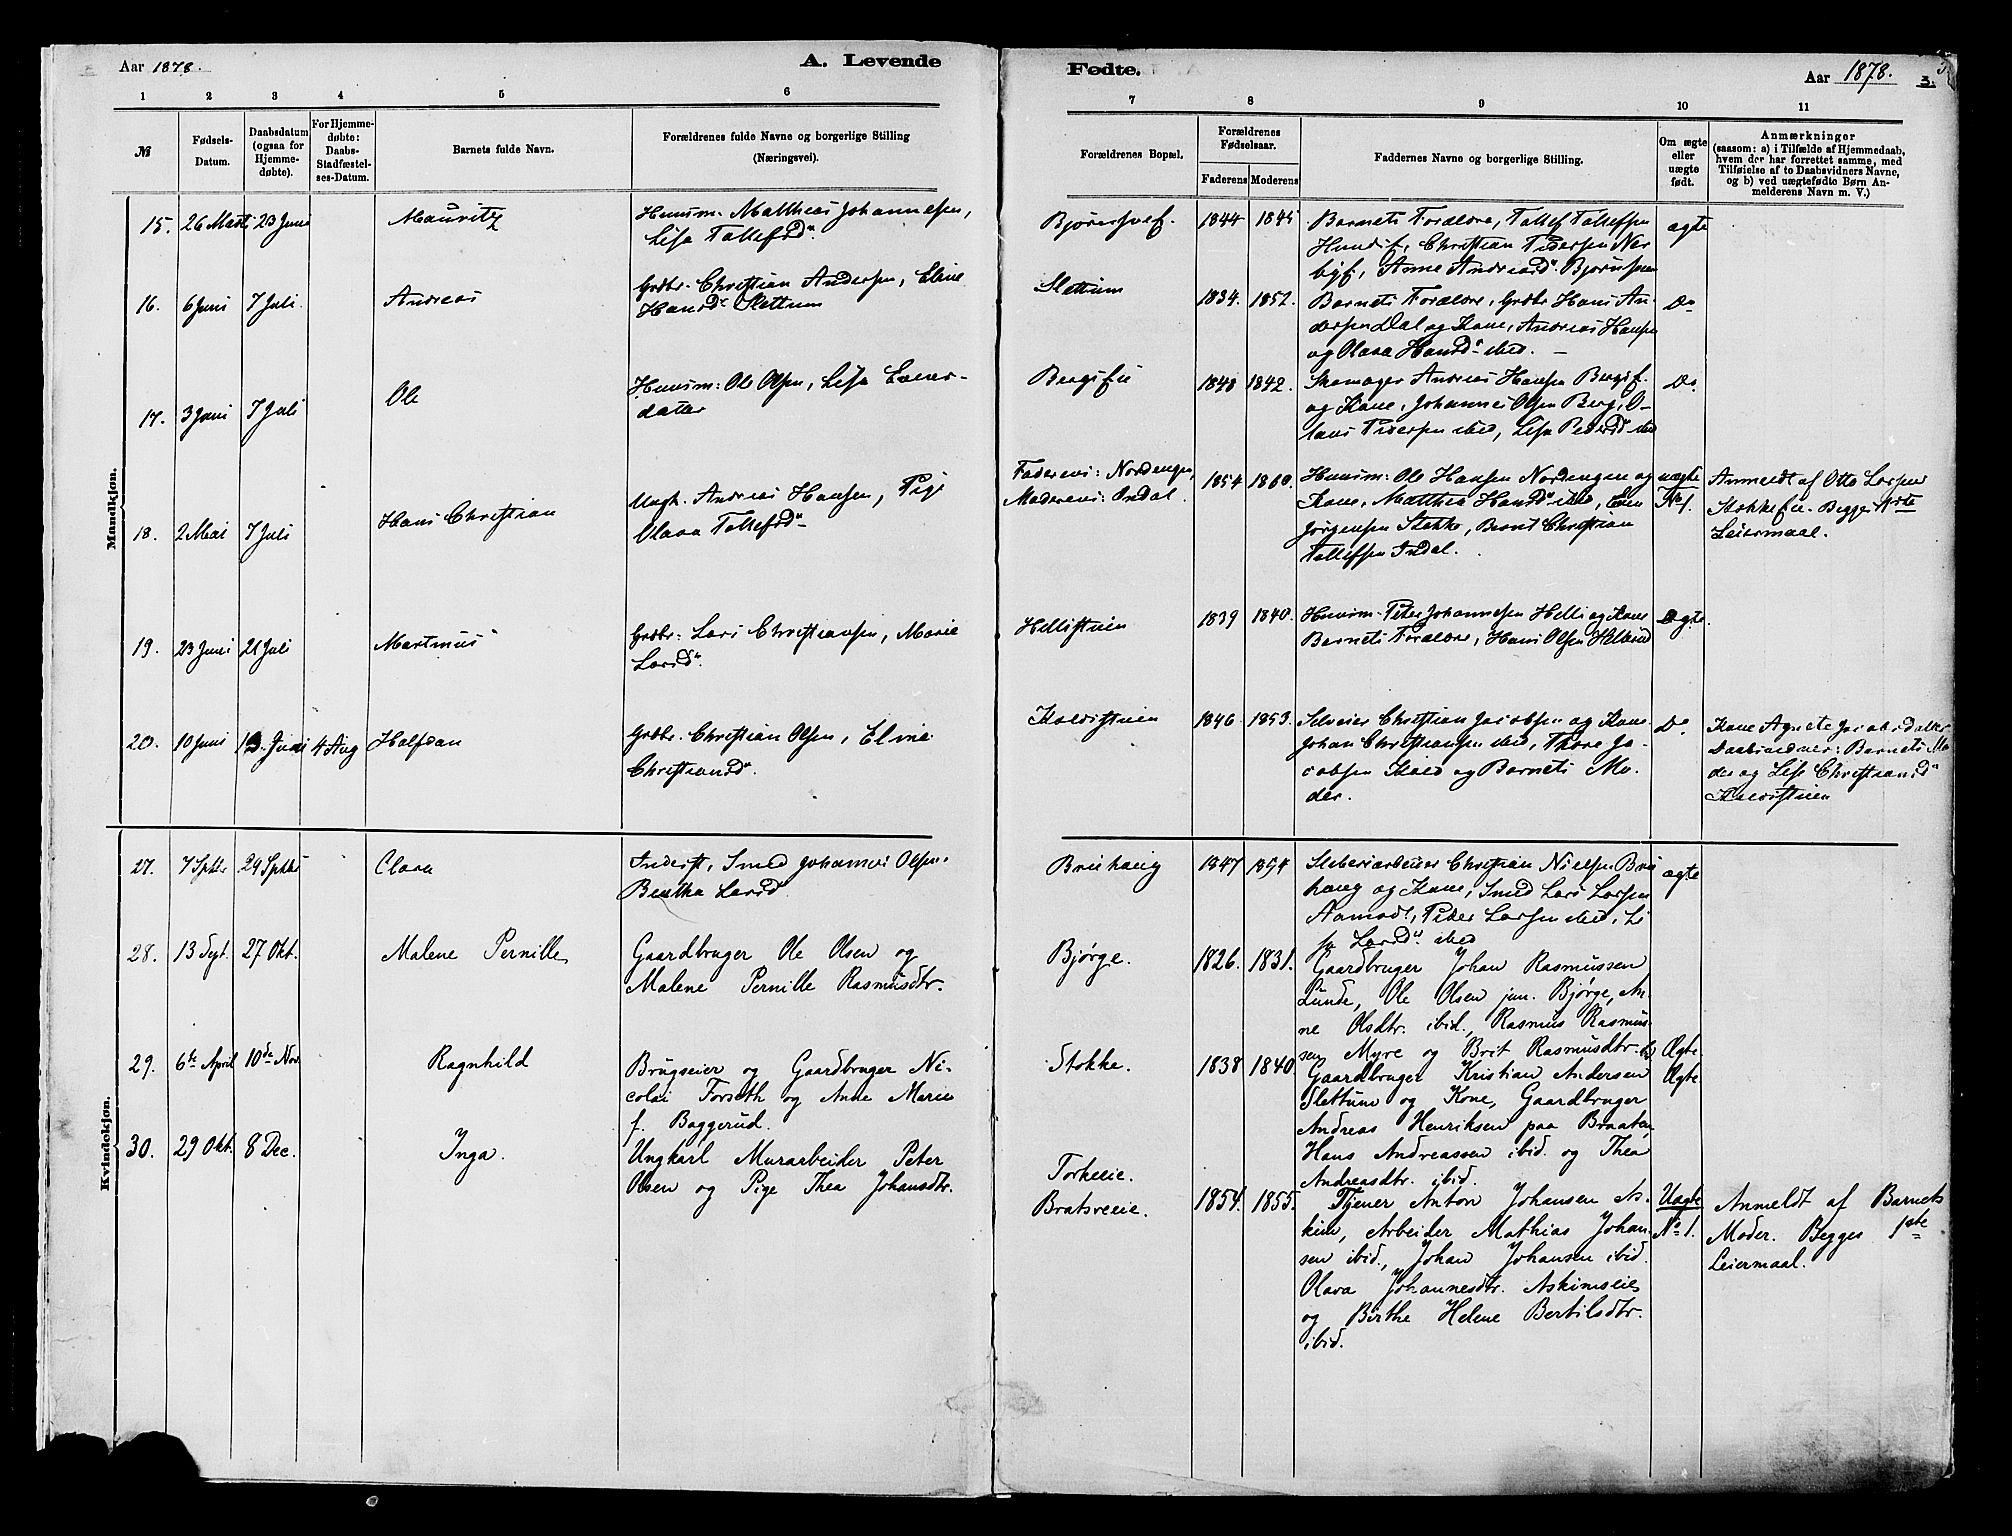 Aar 1878.
A. Levende
Fødte.
Aar 1878.
3.
1 2 3 4 5 6 7 8 9 10 11
№
Fødsels-
Datum.
Daabsdatum
(ogsaa for
Hjemme-
døbte).
For Hjemme-
døbte:
Daabs-
Stadfæstel-
ses-Datum.
Barnets fulde Navn.
Forældrenes fulde Navne og borgerlige Stilling
(Næringsvei).
Forældrenes Bopæl.
Forældrenes
Fødselsaar.
Faderens Moderens
Faddernes Navne og borgerlige Stilling.
Om ægte
eller
uægte
født.
Anmærkninger
(saasom: a) i Tilfælde af Hjemmedaab,
hvem der har forrettet samme, med
Tilføielse af to Daabsvidners Navne,
og b) ved uægtefødte Børn An-
melderens Navn m. V.)
Mandkjøn.
15. 26 Marts 23 Juni
Mauritz
Huusm: Matthias Johannesen,
Lisa Tollefsd.
1844 1845
Barnets Forældre, Tollef Tollefsen
Christian Pedersen
Anne Andreasd.
ægte
16. 6 Juni 7 Juli
Andreas
Grdbr. Christian Andersen, Eline
Hansd. Slettum
Slettum
1834. 1852.
Barnets Forældre, Grdbr Hans An-
dersen Dal og Kone, Andreas Hansen
og Olava Hansd. ibid.
Do
17. 3 Juni 7 Juli
Ole
Huusm: Ole Olsen, Lisa Evens-
datter
1848 1842.
Skomager Andreas Hansen
og Kone, Johannes Olsen Berg, O-
laus Pedersen ibid, Lisa Pedersd. ibid
Do.
18. 2 Mai 7 Juli
Hans Christian
Ungk. Andreas Hansen, Pige
Olava Tollefsd.
Faderens: Nordengen,
Moderens: Indal.
1854 1860.
Huusm: Ole Hansen Nordengen og
Kone, Matthea Hansd. ibid, Even
Jørgensen Stokke, Bernt Christian
Tollefsen Indal.
uægte
No 1.
Anmeldt af Otto Larsen
Stokkeeie. Begges 1ste
Leiermaal.
19. 23 Juni 21 Juli
Martinus
Grdbr: Lars Christiansen, Marie
Larsd.
Hellistuen
1839 1840.
Huusm. Peter Johannesen Helli og Kone
Barnets Forældre, Hans Olsen
ægte.
20. 10 Juni 13. Juni 4 Aug
Halfdan
Grdbr. Christian Olsen, Eline
Christiansd.
1846 1853.
Selveier Christian Jacobsen og Kone
Johan Christiansen ibid, Thore Ja-
cobsen og Barnets Mo-
der.
Do
Kone Agnete Jacobsdatter
Daabsvidner: Barnets Mo
der og Lise Christiansd.
Kvindekjøn.
27. 7 Septbr 29 Septbr
Clara
Inderst, Smed Johannes Olsen,
Beatha Larsd.
Bruhaug
1847 1854
Sliberiarbeider Christian Nielsen Bru
haug og Kone, Smed Lars Larsen
Aamodt, Peder Larsen ibid, Li
sa Larsd. ibid
ægte
28. 13 Sept. 27 Okt.
Malene Pernille
Gaardbruger Ole Olsen og
Malene Pernille Rasmusdtr.
Bjørge.
1826. 1831.
Gaardbruger Johan Rasmussen
Lunde, Ole Olsen jun. Bjørge, An-
ne Olsdtr. ibid., Rasmus Rasmus-
sen Myre og Brit Rasmusdtr. ib
Ægte
29. 6te April 10de Nov.
Ragnhild
Brugseier og Gaardbruger Ni-
colai Forseth og Anne Marie
f. Baggerud.
Stokke.
1838 1840
Gaardbruger Kristian Andersen
Slettum og Kone, Gaardbruger
Andreas Henriksen paa Braaten,
Hans Andreassen ibid. og Thea
Andreasdtr. ibid.
Ægte
30. 29 Okt. 8 Dec.
Inga.
Ungkarl Murarbeider Peter
Olsen og Pige Thea Johansdtr.
Torkeeie.
Bratsveeie.
1854. 1855.
Tjener Anton Johansen As-
kim, Arbeider Mathias Johan-
sen ibid., Johan Johansen ibid.
Olava Johannesdtr. Askimseie
og Birthe Helene Bertilsdtr.
ibid.
Uægte
No 1.
Anmeldt af Barnets
Moder. Begges 1ste
Leiermaal.